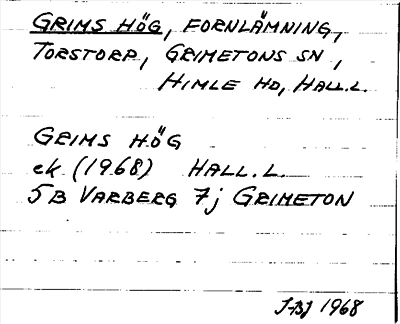 GRIMS HÖG, FORNLÄMNING,
TORSTORP, GRIMETONS SN,
HIMLE HD, HALL.L.
GRIMS HÖG
ek (1968) HALL.L.
5B VARBERG 7j GRIMETON
J-BJ 1968